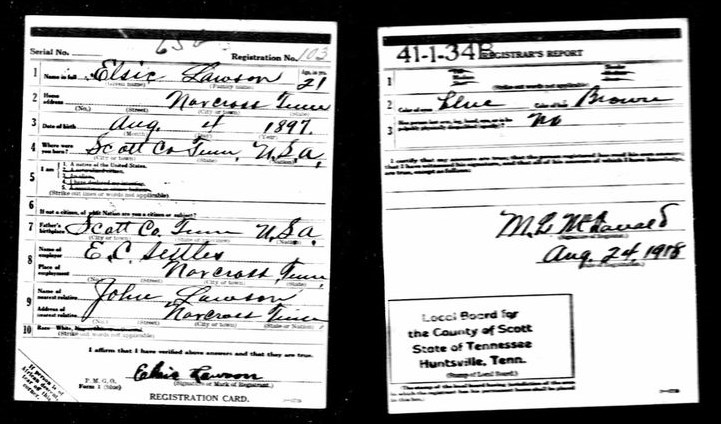 Serial No. 656 Registration No. 103
1 Name in full Elsie Lawson Age, in yrs. 21
(Given name) (Family name)
2 Home address Norcross Tenn
(No.) (Street) (City or town) (State)
3 Date of birth Aug. 4 1897.
(Month) (Day) (Year)
4 Where were you born? Scott Co Tenn, U.S.A.
(City or town) (State) (Nation)
5 I am
1. A native of the United States.
2. A naturalized citizen.
3. An alien.
4. I have declared my intention.
5.
(Strike out lines or words not applicable)
6 If not a citizen, of what Nation are you a citizen or subject?
7 Father's birthplace Scott Co. Tenn U.S.A.
(City or town) (State or province) (Nation)
8 Name of employer E.C. Settles
Place of employment Norcross, Tenn,
(No.) (Street) (City or town) (State)
9 Name of nearest relative John Lawson
Address of nearest relative Norcross Tenn
(No.) (Street) (City or town) (State or Nation)
10 Race—White,
(Strike out words not applicable)
I affirm that I have verified above answers and that they are true.
P. M. G. O.
Form 1 (blue)
Elsie Lawson
(Signature or Mark of Registrant.)
REGISTRATION CARD.
If person is of African descent, tear off this corner.
41-1-34B REGISTRAR'S REPORT
1
(Strike out words not applicable)
2 Color of eyes Blue Color of hair Brown
3 Has person lost arm, leg, hand, eye, or is he palpably physically disqualified (specify)? No
I certify that my answers are true; that the person registered has read his own answers; that I have witnessed his signature, and that all of his answers of which I have knowledge, are true, except as follows:
(Signature of Registrar.)
Aug. 24, 1918
(Date of Registration.)
Local Board for
the County of Scott
State of Tennessee
Huntsville, Tenn.
(Stamp of Local Board.)
(The stamp of the local board having jurisdiction of the area
in which the registrant has his permanent home shall be placed
in this box.)